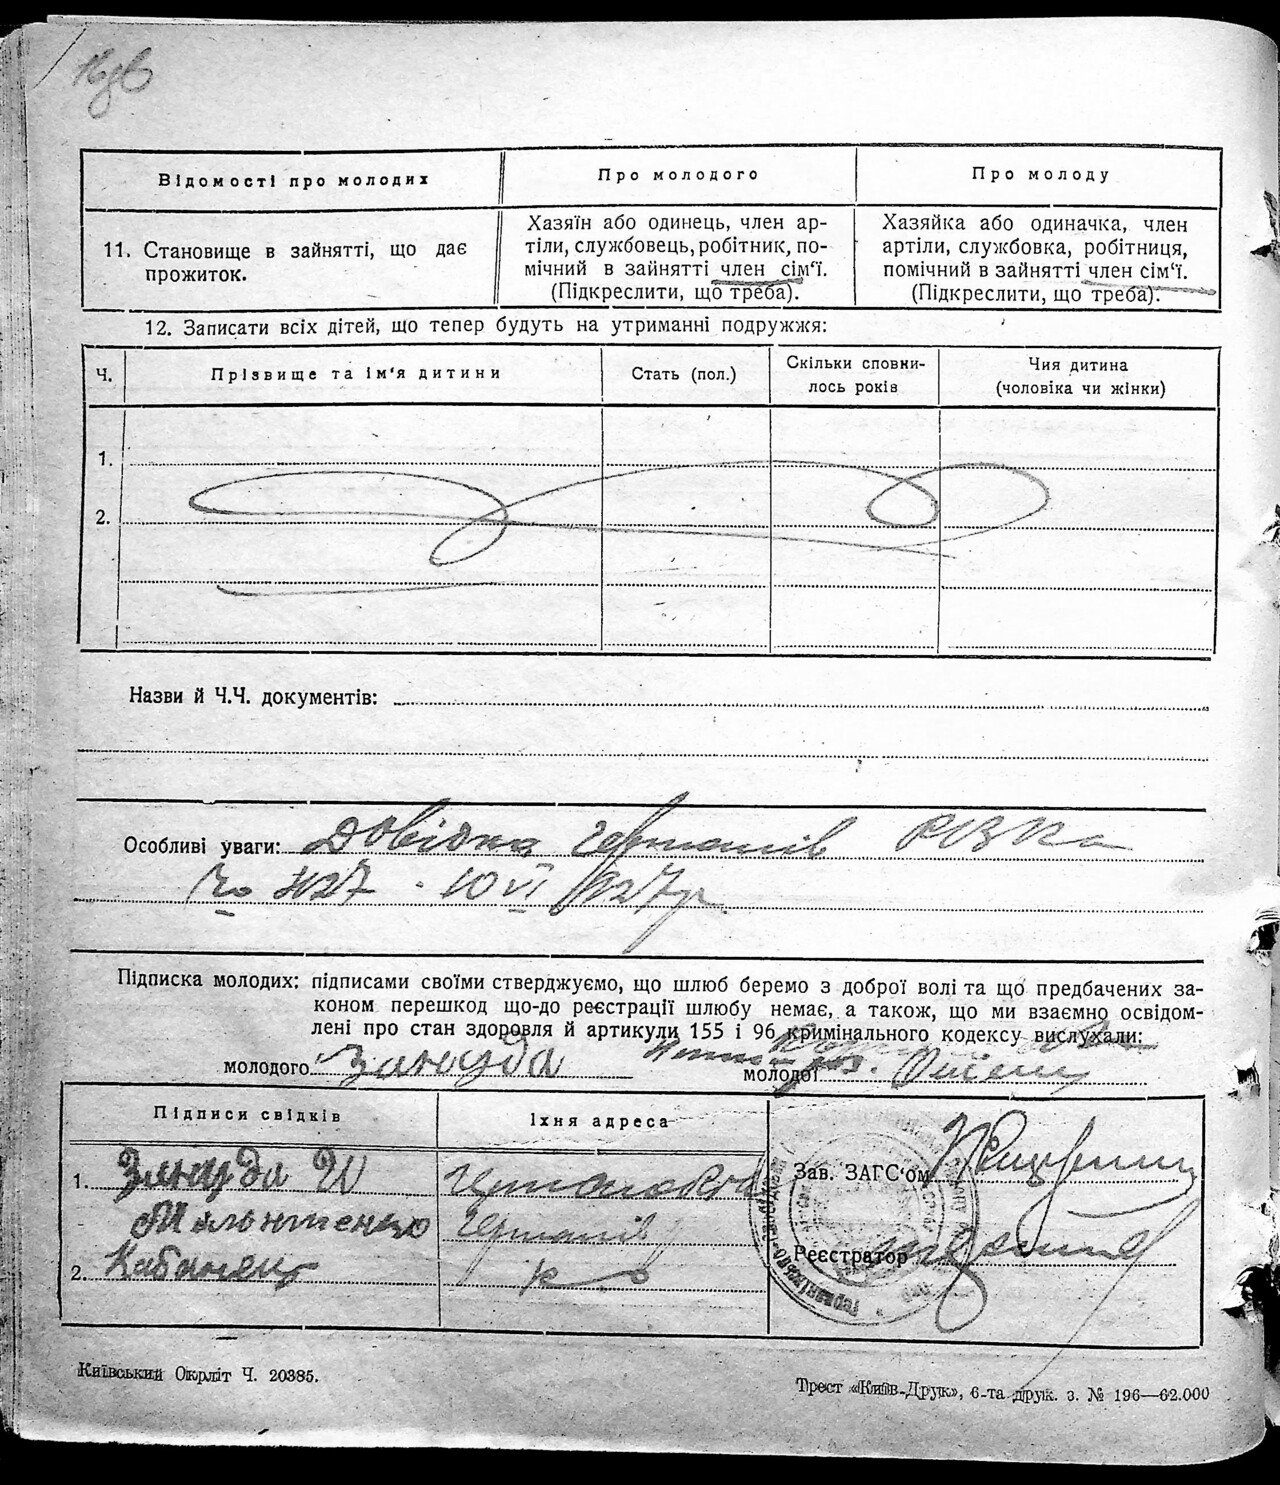 Відомості про молодих
Про молодого
Про молоду
11. Становище в зайнятті, що дає
прожиток.
Хазяїн або одинець, член ар-
тіли, службовець, робітник, по-
мічний в зайнятті член сім'ї.
(Підкреслити, що треба).
Хазяйка або одиначка, член
артіли, службовка, робітниця,
помічний в зайнятті член сім'ї.
(Підкреслити, що треба).
12. Записати всіх дітей, що тепер будуть на утриманні подружжя:
Ч.
Прізвище та ім'я дитини
Стать (пол.)
Скільки сповни-
лось років
Чия дитина
(чоловіка чи жінки)
1.
2.
Назви й Ч.Ч. документів:
Особливі уваги: Довідка
427 10 VI 1927 р
Підписка молодих: підписами своїми стверджуємо, що шлюб беремо з доброї волі та що предбачених за-
коном перешкод що-до реєстрації шлюбу немає, а також, що ми взаємно освідом-
лені про стан здоровля й артикули 155 і 96 кримінального кодексу вислухали:
молодого Зануда
молодої
Підписи свідків
Їхня адреса
1. Зануда
2. Кабанець
Зав. ЗАГС'ом
Реєстратор
Київський Окрліт Ч. 20385.
Трест «Київ-Друк», 6-та друк. з. № 196—62.000